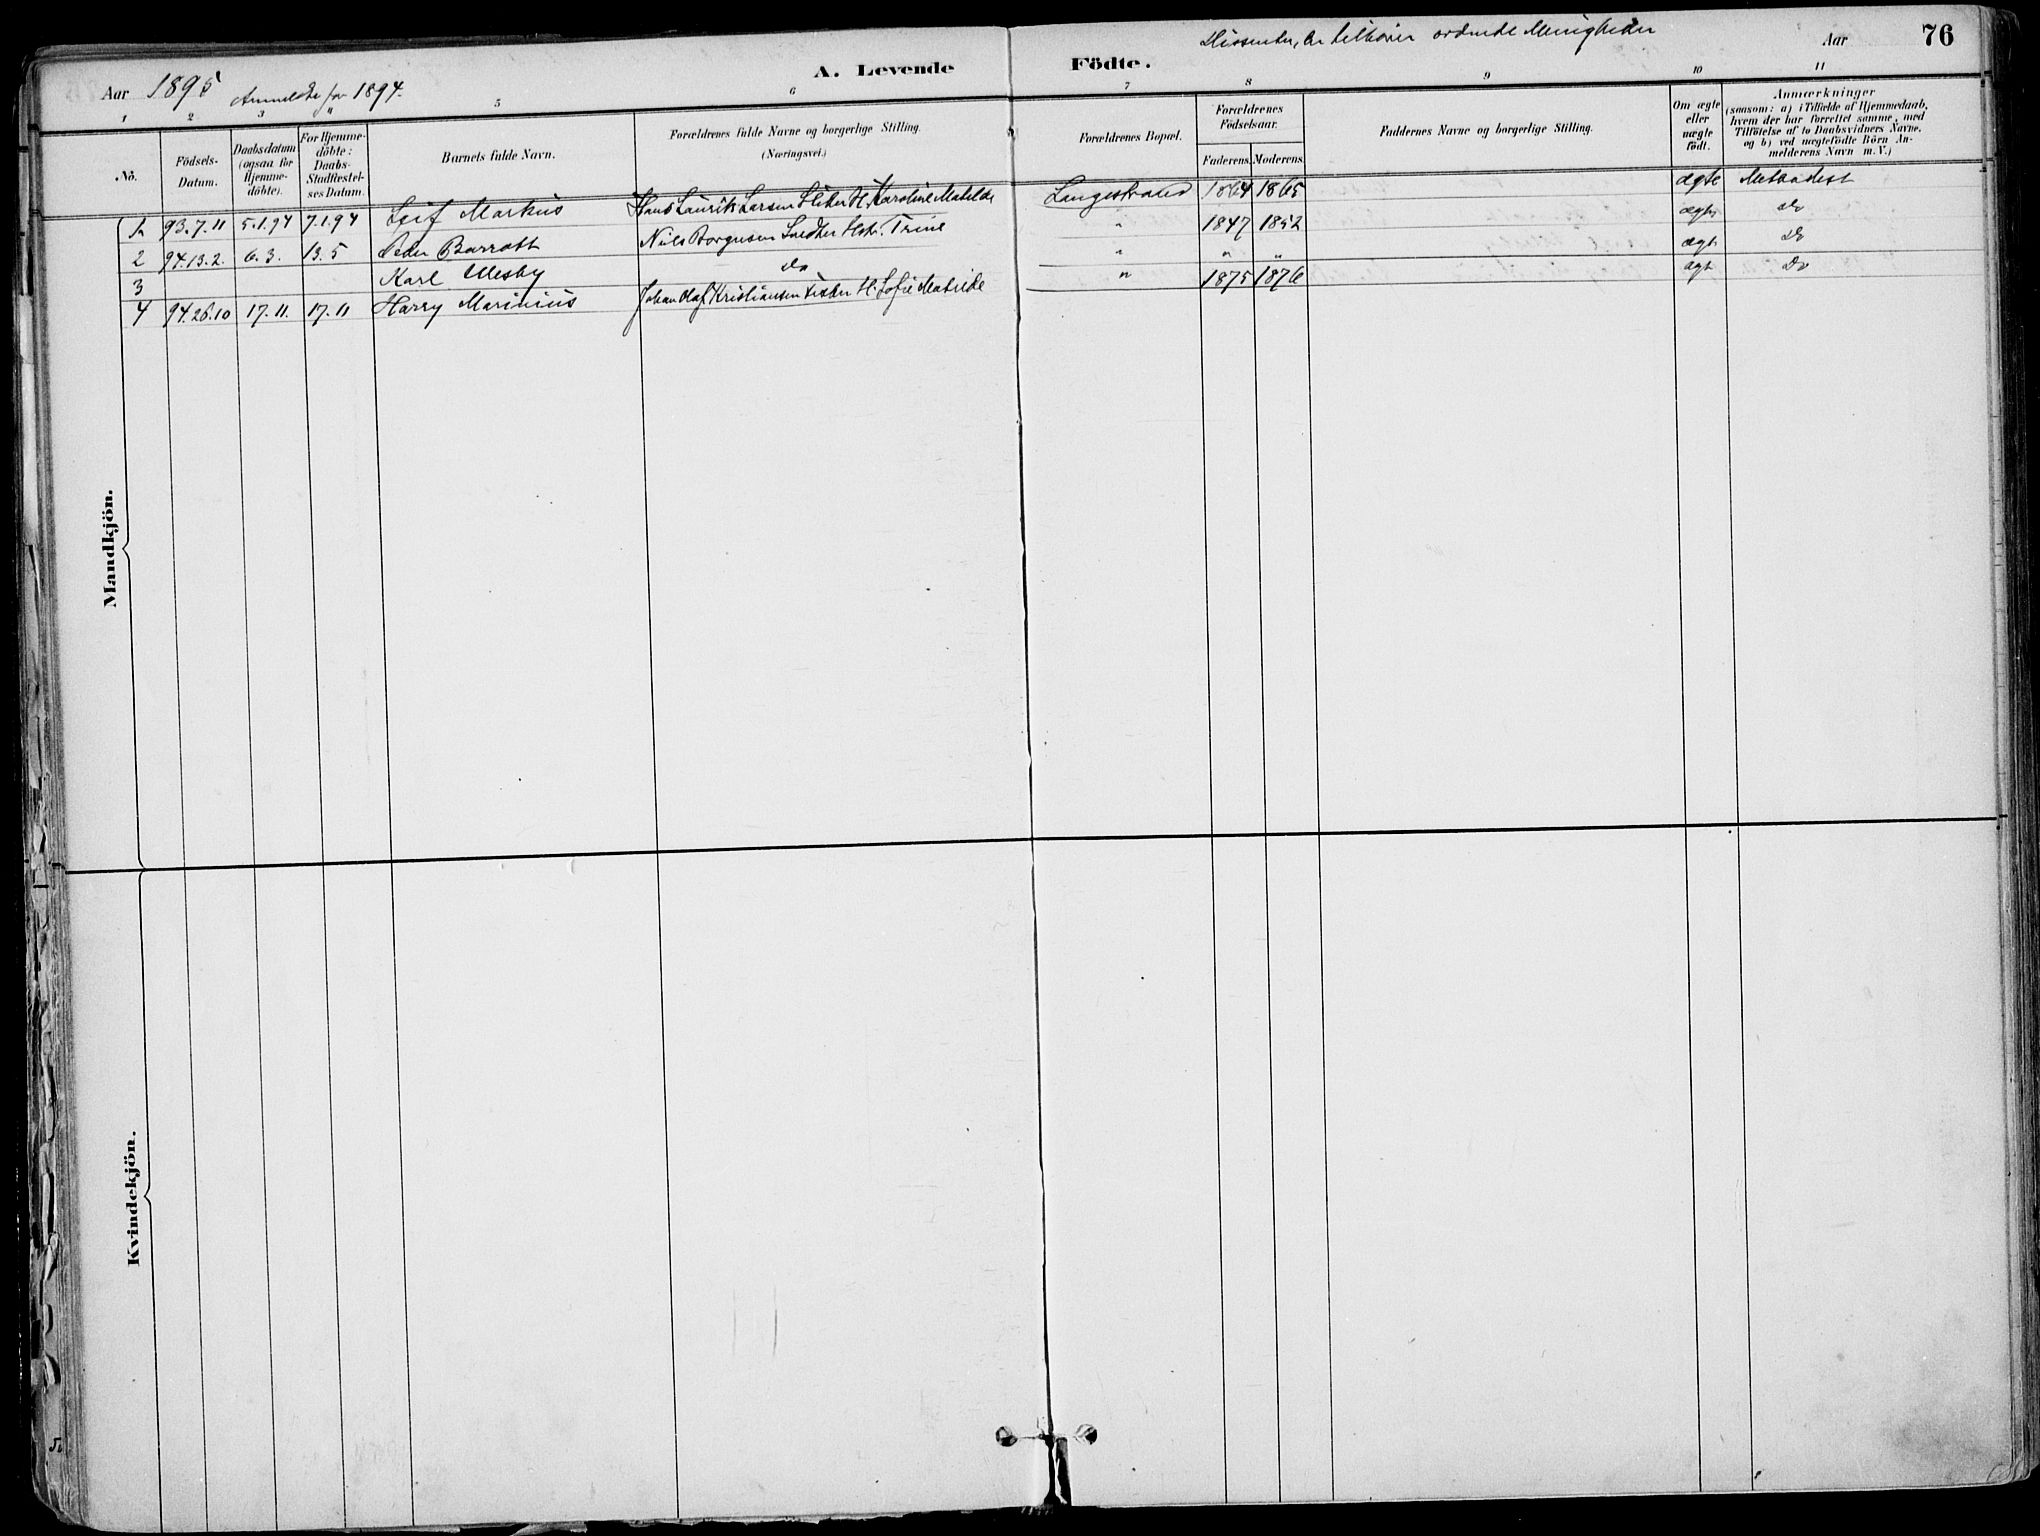 Aar 1895 Anmeldte for 1894.
A. Levende Födte.
Dissenter, der tilhører ordnede Menigheder
Aar 76
1 2 3 „ 5 6 7 8 9 10 11
No.
Födsels-Datum.
Daabsdatum (ogsaa for Hjemmedöbte).
For Hjemmedöbte: Daabs-Stadfæstelses Datum.
Barnets fulde Navn.
Forældrenes fulde Navne og borgerlige Stilling.
(Næringsvei.)
Forældrenes Bopæl.
Forældrenes Födselsaar.
Faderens. Moderens.
Faddernes Navne og borgerlige Stilling.
Om ægte eller uægte födt.
Anmærkninger
(saasom: a) i Tilfælde af Hjemmedaab, hvem der har forrettet samme, med Tilföielse af to Daabsvidners Navne, og b) ved uægtefödte Börn Anmelderens Navn m. V.)
1 93.7.11 5.1.94 7.1.94 Leif Markus Hans Laurik Larsen H. Karoline Matilde Langestrand 1864 1865 ægte Methodist
2 94.13.2. 6.3. 13.5 Peder Barratt Nils Borgersen Hstr. Trine „ 1847 1852 ægte Do
3 Karl Ulesby Do „ „ „ ægt. Do
4 94.26.10 17.11. 17.11 Harry Marinius Johan Olaf Kristiansen H. Sofie Matilde „ 1875 1876 ægt. Do
Mandkjön.
Kvindekjön.